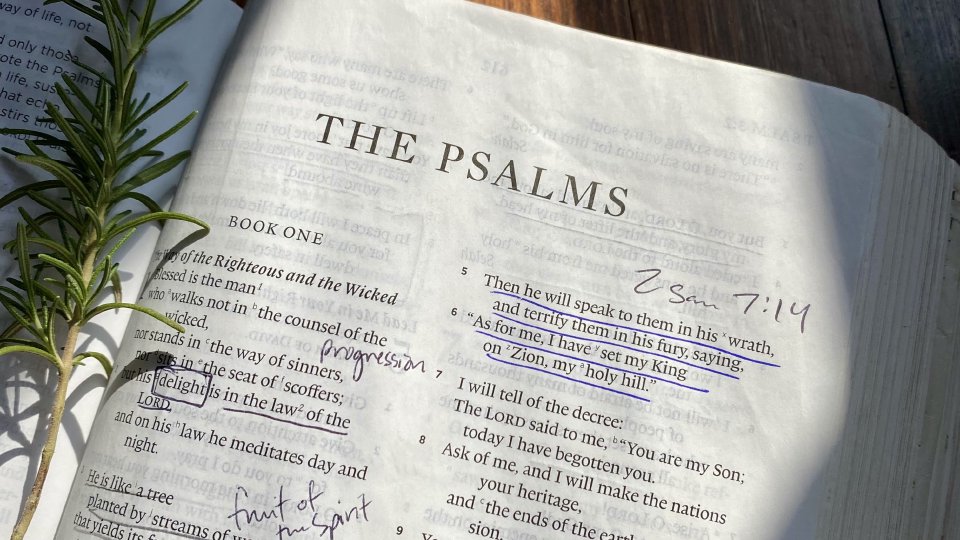 way of life, not
only those
ote the Psalms
life,
hat echo
stirs
THE PSALMS
BOOK ONE
of the Righteous and the Wicked
Blessed is the man¹
who ᵃwalks not in ᵇthe counsel of the
wicked,
nor stands in ᶜthe way of sinners,
progression
nor ᵈsits in ᵉthe seat of ᶠscoffers;
but his ᵍdelight is in the law² of the
LORD,
and on his ʰlaw he meditates day and
night.
He is like ⁱa tree
planted by ʲstreams of
that yields its
fruit of
the Spirit
2 Sam 7:14
5 Then he will speak to them in his ˣwrath,
and terrify them in his fury, saying,
6 “As for me, I have ʸset my King
on ᶻZion, my ᵃholy hill.”
7 I will tell of the decree:
The LORD said to me, ᵇ“You are my Son;
today I have begotten you.
8 Ask of me, and I will make the nations
your heritage,
and ᶜthe ends of the earth
sion.
9